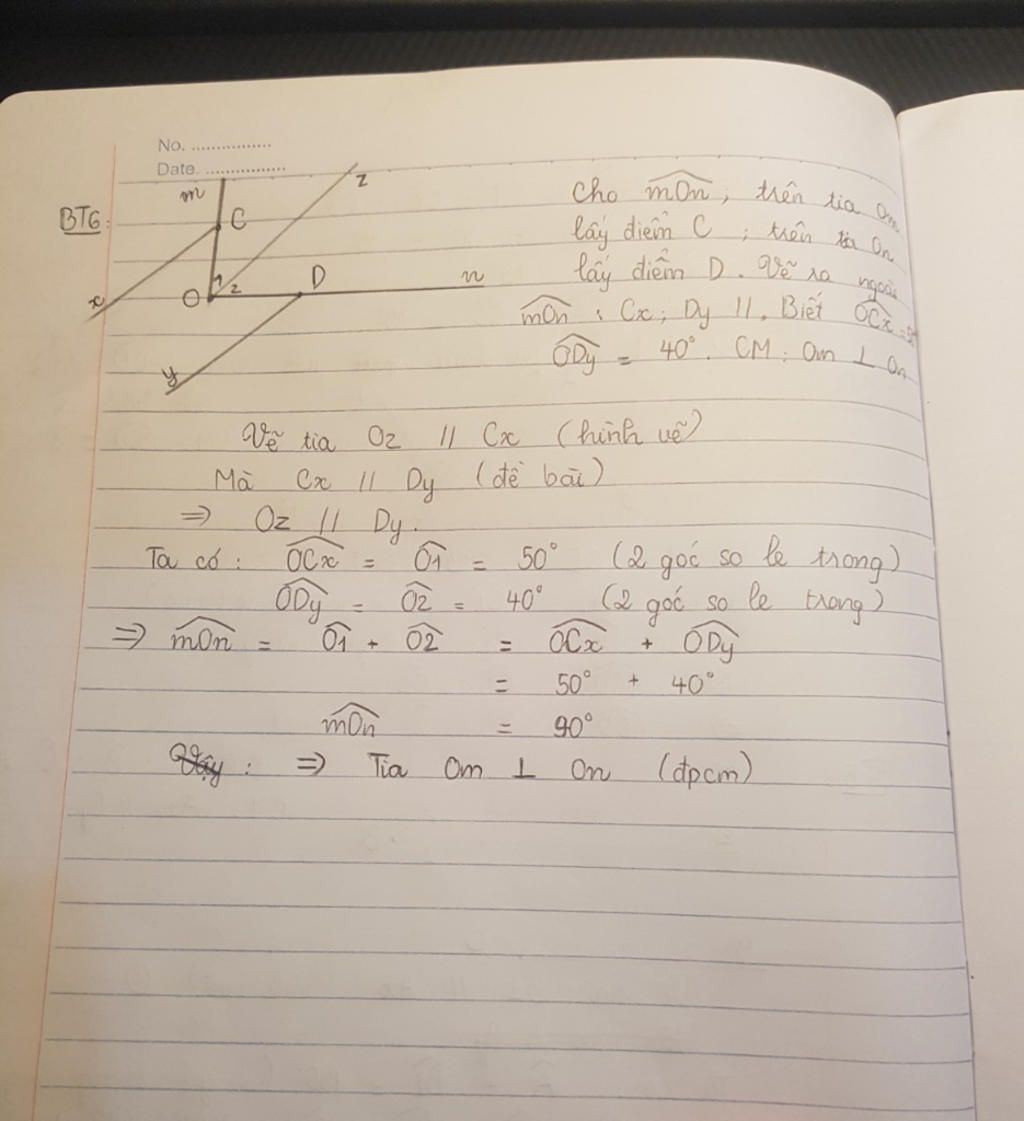 No. ................
Date. ................
BT6:
m
C
z
x
O
1
2
D
n
y
Cho mOn ; trên tia Om
lấy điểm C ; trên tia On
lấy điểm D. Vẽ ra ngoài
mOn : Cx ; Dy //. Biết OCx =
ODy = 40°. CM : Om ⊥ On
Vẽ tia Oz // Cx (hình vẽ)
Mà Cx // Dy (đề bài)
=> Oz // Dy.
Ta có : OCx = O1 = 50° (2 góc so le trong)
ODy = O2 = 40° (2 góc so le trong)
=> mOn = O1 + O2 = OCx + ODy
= 50° + 40°
mOn = 90°
Vậy : => Tia Om ⊥ On (đpcm)